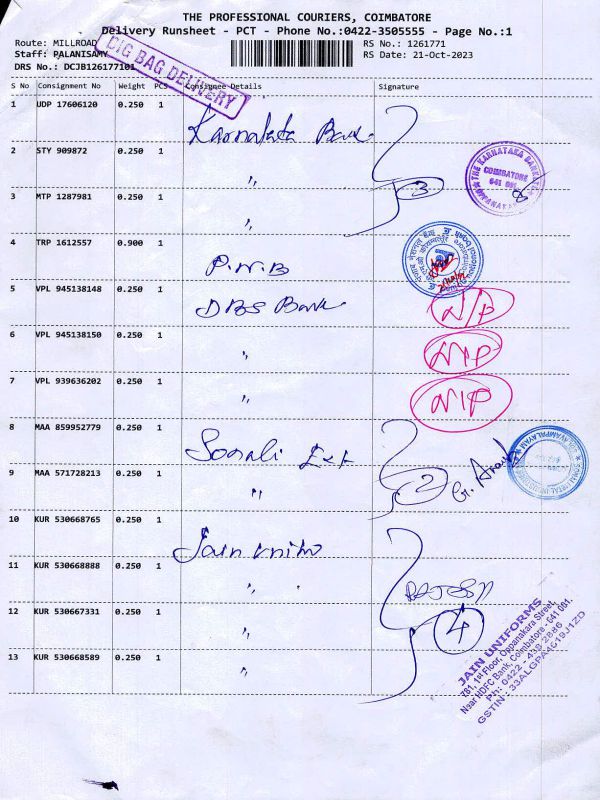 THE PROFESSIONAL COURIERS, COIMBATORE
Delivery Runsheet - PCT - Phone No.:0422-3505555 - Page No.:1
Route: MILLROAD
RS No.: 1261771
Staff: PALANISAMY
RS Date: 21-Oct-2023
DRS No.: DCJB126177101
BIG BAG DELIVERY
S No Consignment No Weight PCS Consignee Details Signature
1 UDP 17606120 0.250 1 Karnataka Bank
2 STY 909872 0.250 1 "
3 MTP 1287981 0.250 1 "
3
THE KARNATAKA BANK
COIMBATORE
641 001
4 TRP 1612557 0.900 1 P.N.B
5 VPL 945138148 0.250 1 DBS Bank N/P
6 VPL 945138150 0.250 1 " N/P
7 VPL 939636202 0.250 1 " N/P
8 MAA 859952779 0.250 1 Sonali
9 MAA 571728213 0.250 1 "
2
10 KUR 530668765 0.250 1 Jain
11 KUR 530668888 0.250 1 "
12 KUR 530667331 0.250 1 "
13 KUR 530668589 0.250 1 "
4
JAIN UNIFORMS
781, 1st Floor, Oppanakara Street,
Near HDFC Bank, Coimbatore - 641 001.
Ph: 0422 - 438 2886
GSTIN : 33ALGPA4619J1ZD